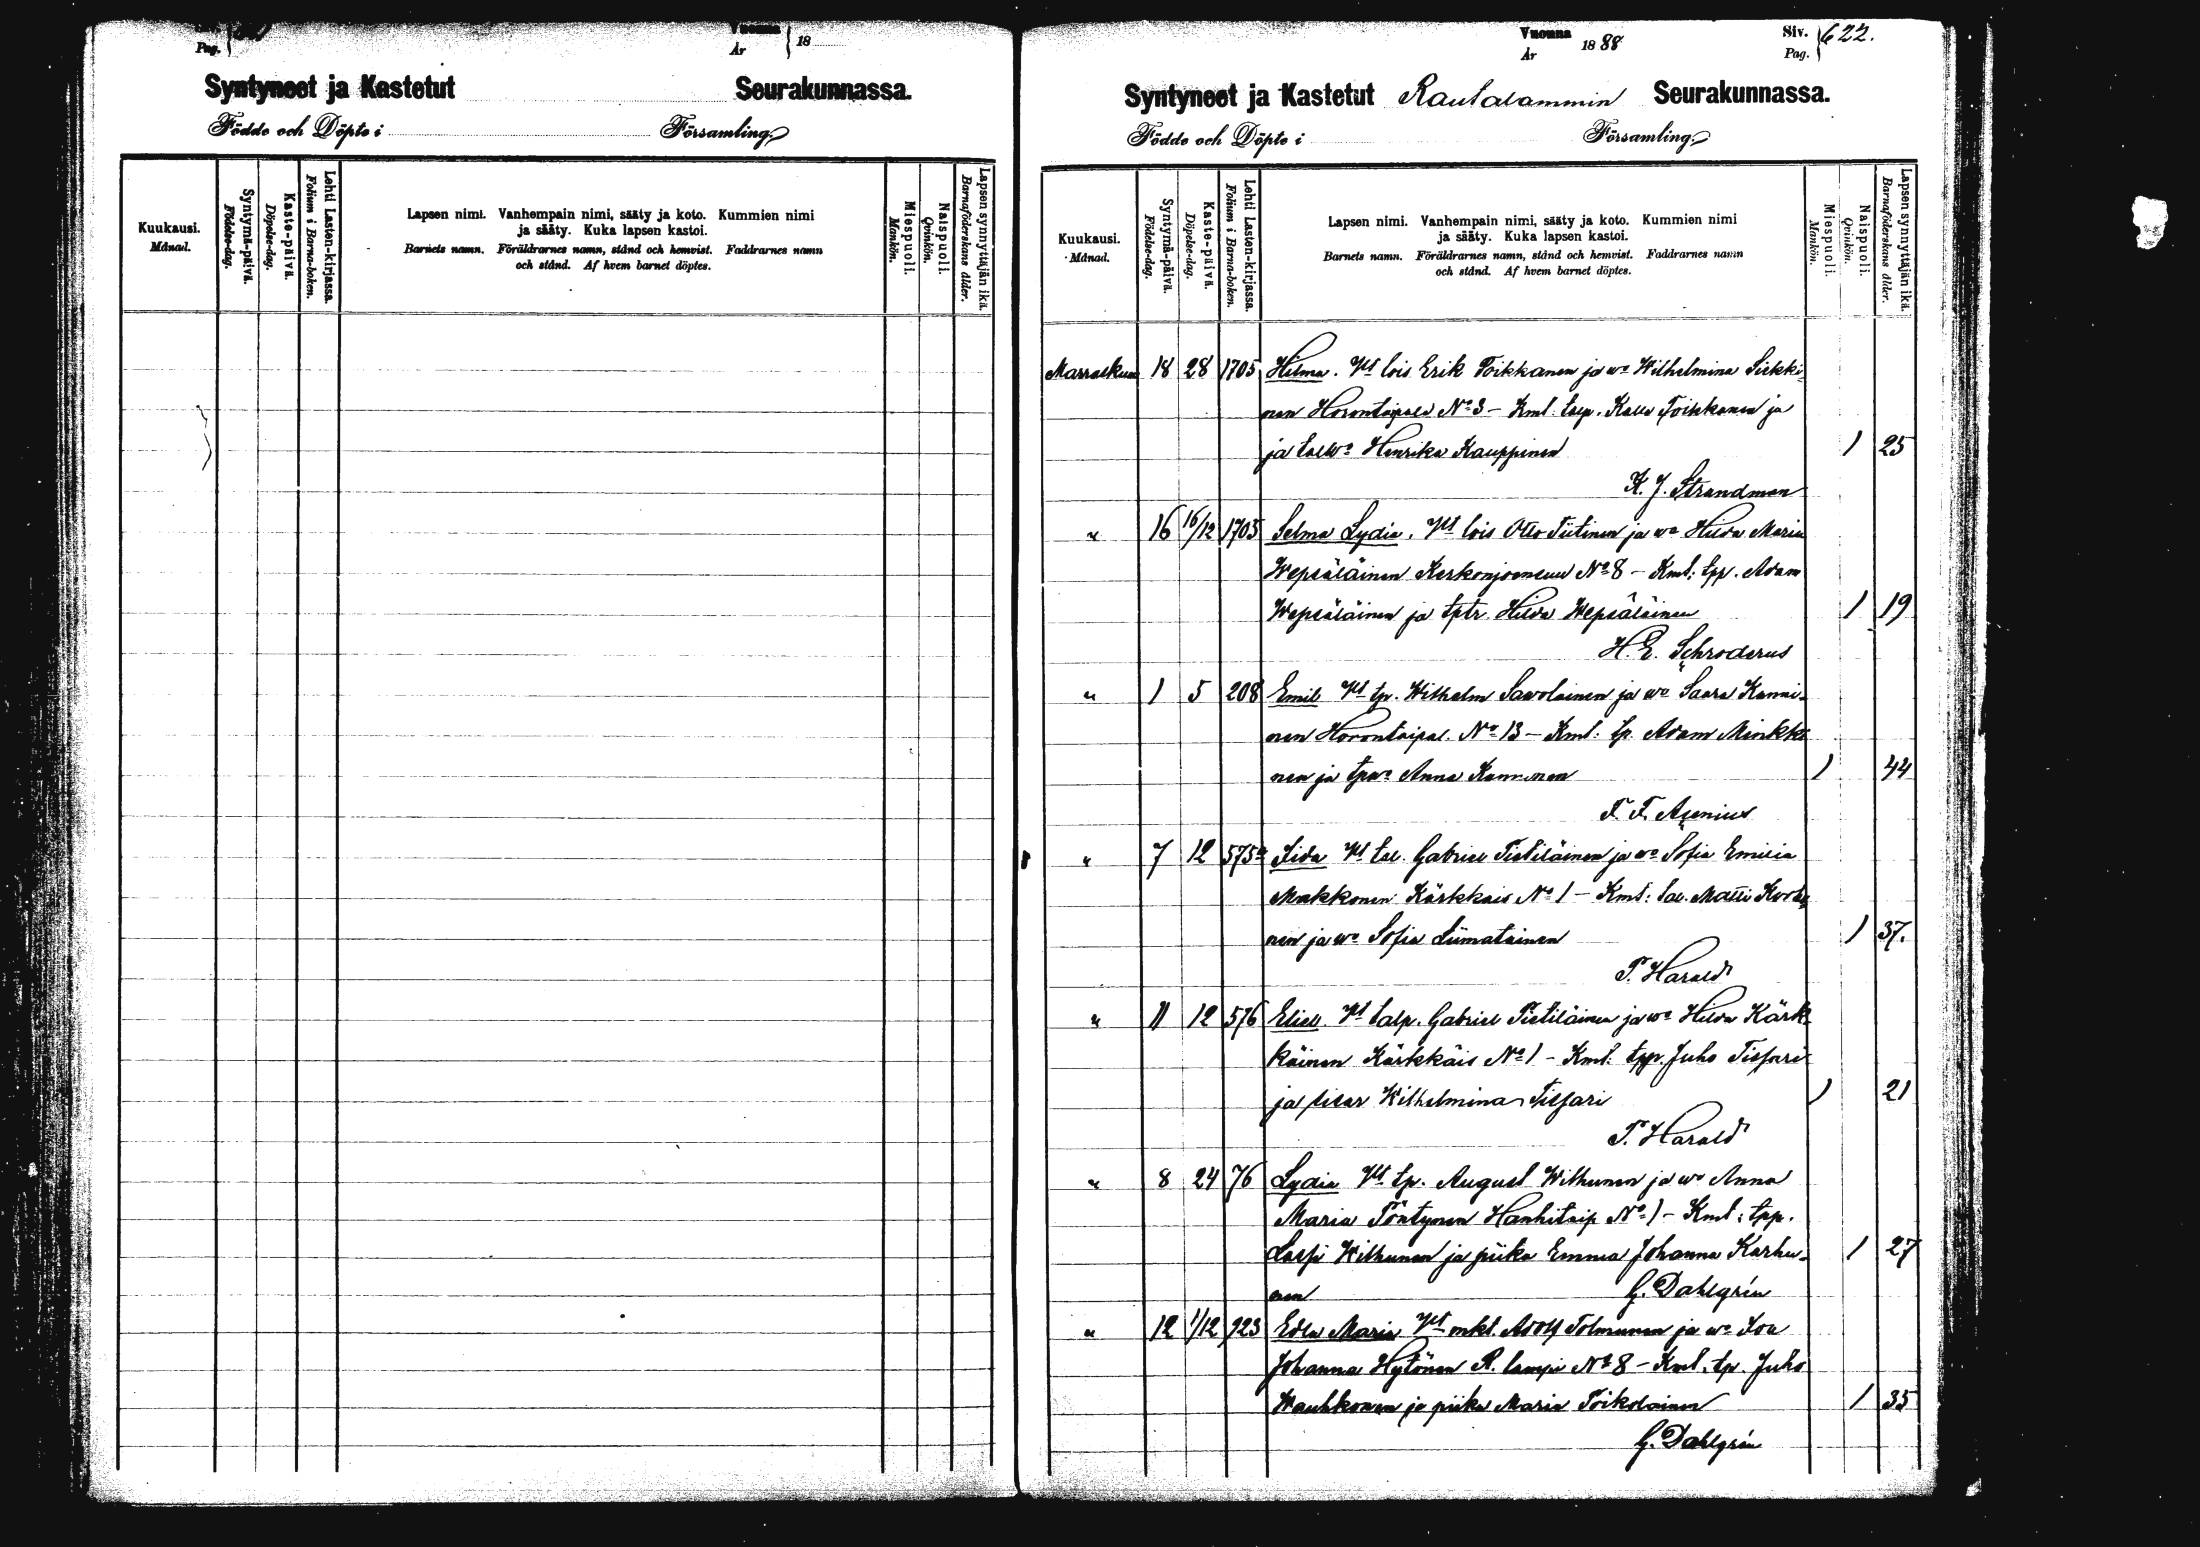 Pag.
Vuonna
År
18
Syntyneet ja Kastetut Seurakunnassa.
Födde och Döpte i Församling.
Kuukausi.
Månad.
Syntymä-päivä.
Födelse-dag.
Kaste-päivä.
Döpelse-dag.
Lehti Lasten-kirjassa.
Folium i Barna-boken.
Lapsen nimi. Vanhempain nimi, sääty ja koto. Kummien nimi
ja sääty. Kuka lapsen kastoi.
Barnets namn. Föräldrarnes namn, stånd och hemvist. Faddrarnes namn
och stånd. Af hvem barnet döptes.
Miespuoli.
Mankön.
Naispuoli.
Qvinkön.
Lapsen synnyttäjän ikä.
Barnaföderskans ålder.
Vuonna
År
1888
Siv.
Pag.
622.
Syntyneet ja Kastetut Rautalammin Seurakunnassa.
Födde och Döpte i Församling.
Kuukausi.
Månad.
Syntymä-päivä.
Födelse-dag.
Kaste-päivä.
Döpelse-dag.
Lehti Lasten-kirjassa.
Folium i Barna-boken.
Lapsen nimi. Vanhempain nimi, sääty ja koto. Kummien nimi
ja sääty. Kuka lapsen kastoi.
Barnets namn. Föräldrarnes namn, stånd och hemvist. Faddrarnes namn
och stånd. Af hvem barnet döptes.
Miespuoli.
Mankön.
Naispuoli.
Qvinkön.
Lapsen synnyttäjän ikä.
Barnaföderskans ålder.
Marraskuu 18 28 1705 Hilma. Vt lois Erik Toikkanen ja wo Wilhelmina Sirkki-
nen Horontaipale No 3 – Kmt. talp. Kalle Toikkanen ja
ja talwo Henrika Kauppinen 1 25
K. J. Strandman
" 16 16/12 1705 Selma Lydia. Vt lois Otto Tiitinen ja wo Hilda Maria
Wepsäläinen Kerkonjoensuu No 8 – Kmt: tpp. Adam
Wepsäläinen ja tptr. Hilda Wepsäläinen 1 19
H. E. Schroderus
" 1 5 208 Emil Vt tp. Wilhelm Sawolainen ja wo Saara Kanni-
nen Horontaipal. No 13 – Kmt: tp. Adam Minkki
nen ja tpwo Anna Kanninen 1 44
F. F. Asenius
" 7 12 575 Iida Vt tal. Gabriel Tistiläinen ja wo Sofia Emilia
Makkonen Kärkkäis No 1 – Kmt: tal. Matti Korho
nen ja wo Sofia Liimatainen 1 37.
T. Harald
" 11 12 576 Eliel. Vt talp. Gabriel Pietiläinen ja wo Hilda Kärk-
käinen Kärkkäis No 1 – Kmt: tpp. Juho Tissari
ja sisar Wilhelmina Tissari 1 21
T. Harald
" 8 24 76 Lydia Vt tp. August Wilhunen ja wo Anna
Maria Pöntynen Hanhitaip No 1 – Kmt: tpp.
Lassi Wilhunen ja piika Emma Johanna Karhu- 1 27
nen G. Dahlgrén
" 12 1/12 923 Edla Maria Vt mkt. Adolf Tolmunen ja wo Eva
Johanna Hytönen R. lampi No 8 – Kmt. tp. Juho
Wauhkonen ja piika Maria Toikolainen 1 35
G. Dahlgrén